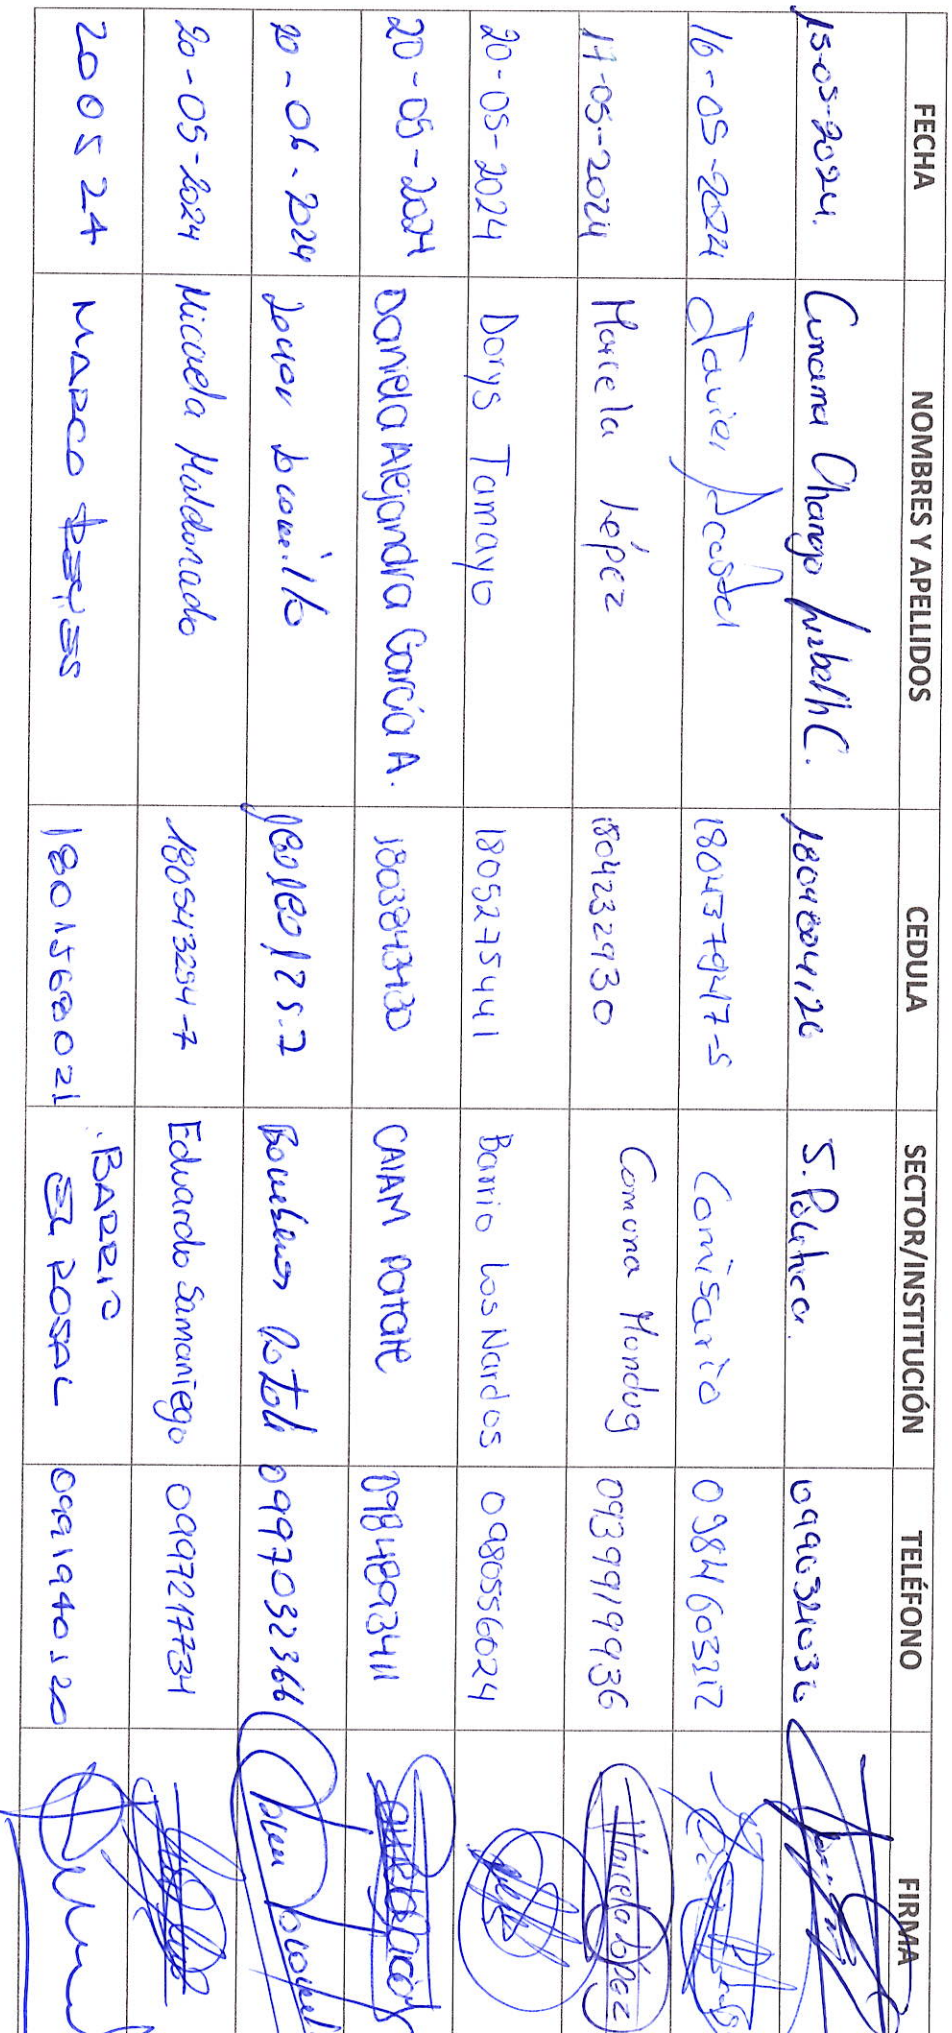 FECHA NOMBRES Y APELLIDOS CEDULA SECTOR/INSTITUCIÓN TELÉFONO FIRMA
15-05-2024. Chango C. 1804804126 S. Política. 0990321036
16-05-2024 Javier Acosta Comisario 0984160317
17-05-2024 Marcela López 1804232930 Comuna Mundug 0939919936
20-05-2024 Dorys Tamayo 1805275441 Barrio Los Nardos 0980556024
20-05-2024 Daniela Alejandra García A. 1803843430 CAIAM Patate 0984893411
20-06-2024 Bomberos 0997032366
20-05-2024 Micaela Maldonado 180543254-7 Eduardo Samaniego 0997217734
200524 MARCO 1801568021 BARRIO EL ROSAL 0991940520
Marcela López